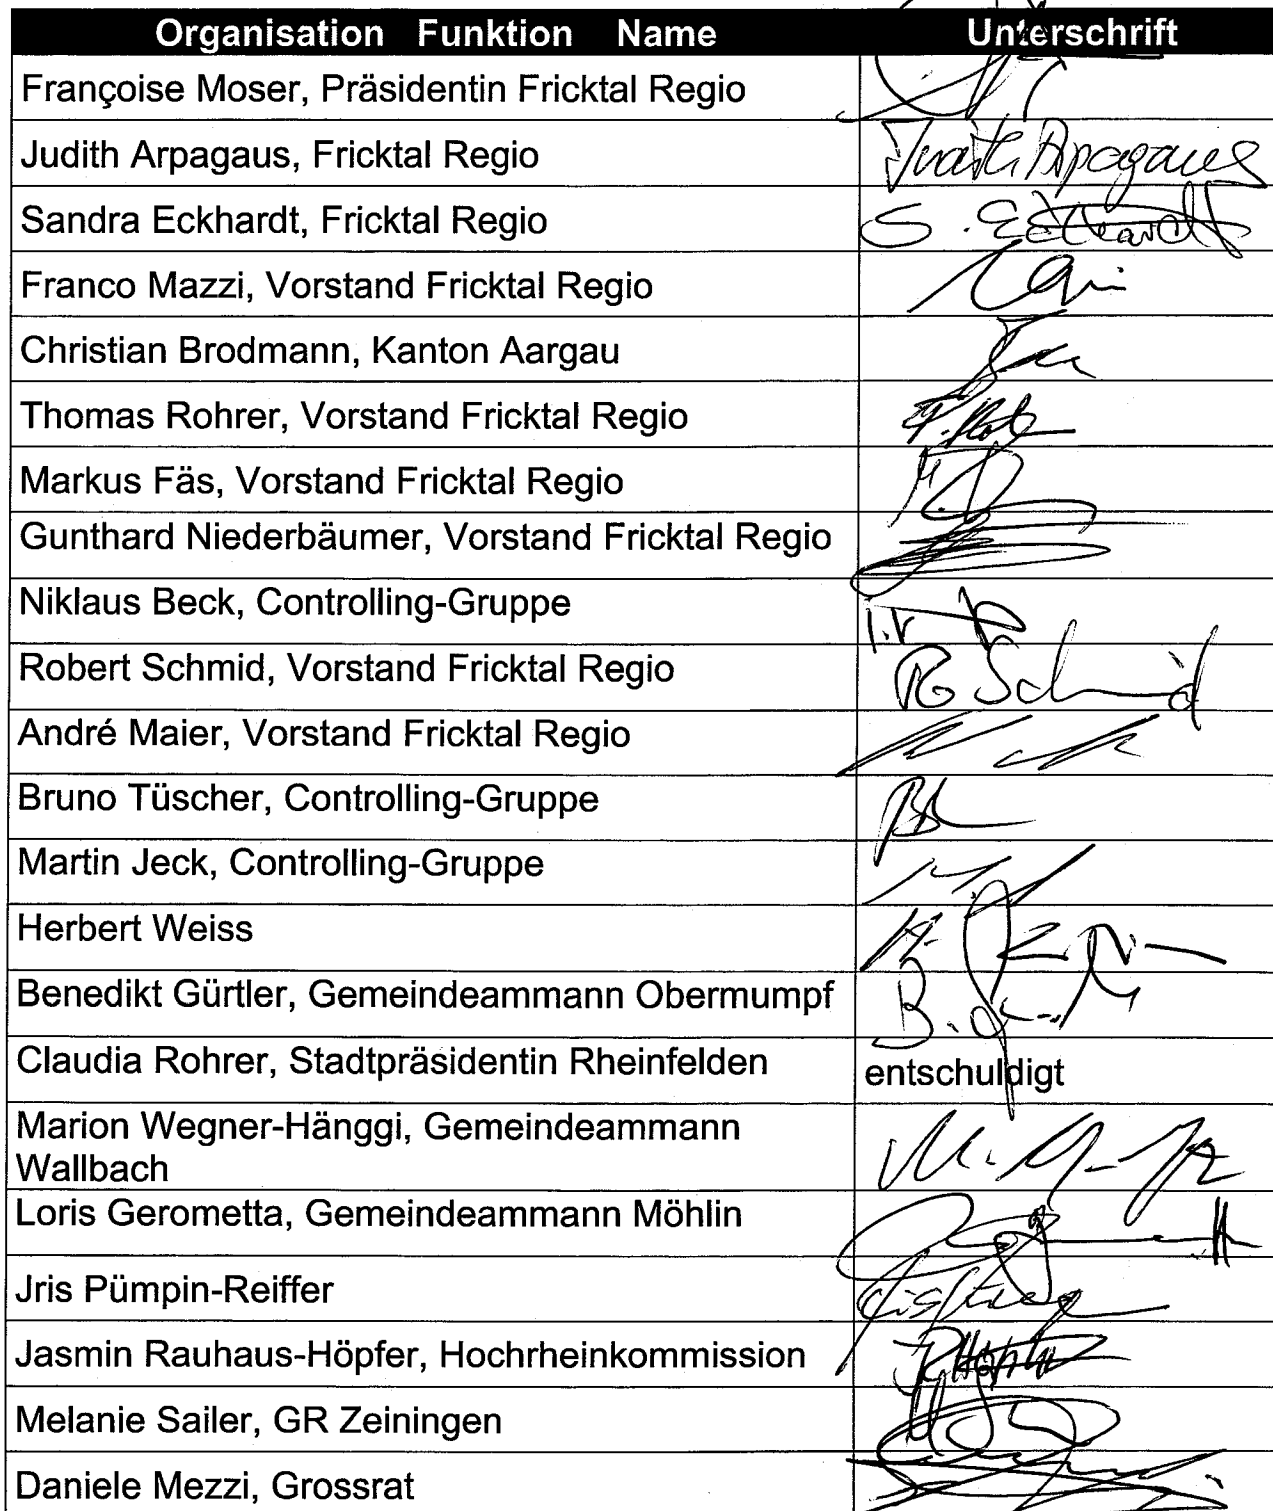 Organisation Funktion Name Unterschrift
Françoise Moser, Präsidentin Fricktal Regio
Judith Arpagaus, Fricktal Regio Judith Arpagaus
Sandra Eckhardt, Fricktal Regio S. Eckhardt
Franco Mazzi, Vorstand Fricktal Regio
Christian Brodmann, Kanton Aargau
Thomas Rohrer, Vorstand Fricktal Regio
Markus Fäs, Vorstand Fricktal Regio
Gunthard Niederbäumer, Vorstand Fricktal Regio
Niklaus Beck, Controlling-Gruppe
Robert Schmid, Vorstand Fricktal Regio R Schmid
André Maier, Vorstand Fricktal Regio
Bruno Tüscher, Controlling-Gruppe
Martin Jeck, Controlling-Gruppe
Herbert Weiss
Benedikt Gürtler, Gemeindeammann Obermumpf
Claudia Rohrer, Stadtpräsidentin Rheinfelden entschuldigt
Marion Wegner-Hänggi, Gemeindeammann
Wallbach
Loris Gerometta, Gemeindeammann Möhlin
Jris Pümpin-Reiffer
Jasmin Rauhaus-Höpfer, Hochrheinkommission
Melanie Sailer, GR Zeiningen
Daniele Mezzi, Grossrat